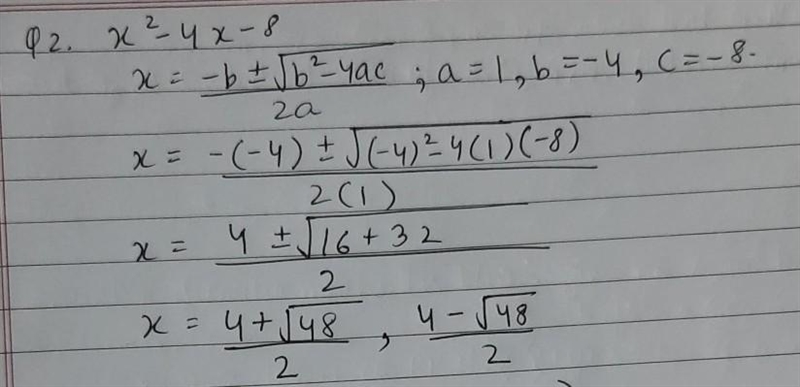 Q2. x² - 4x - 8
x = -b ± √(b² - 4ac) / 2a ; a = 1, b = -4, c = -8.
x = -(-4) ± √((-4)² - 4(1)(-8)) / 2(1)
x = 4 ± √(16 + 32) / 2
x = 4 + √48 / 2 , 4 - √48 / 2